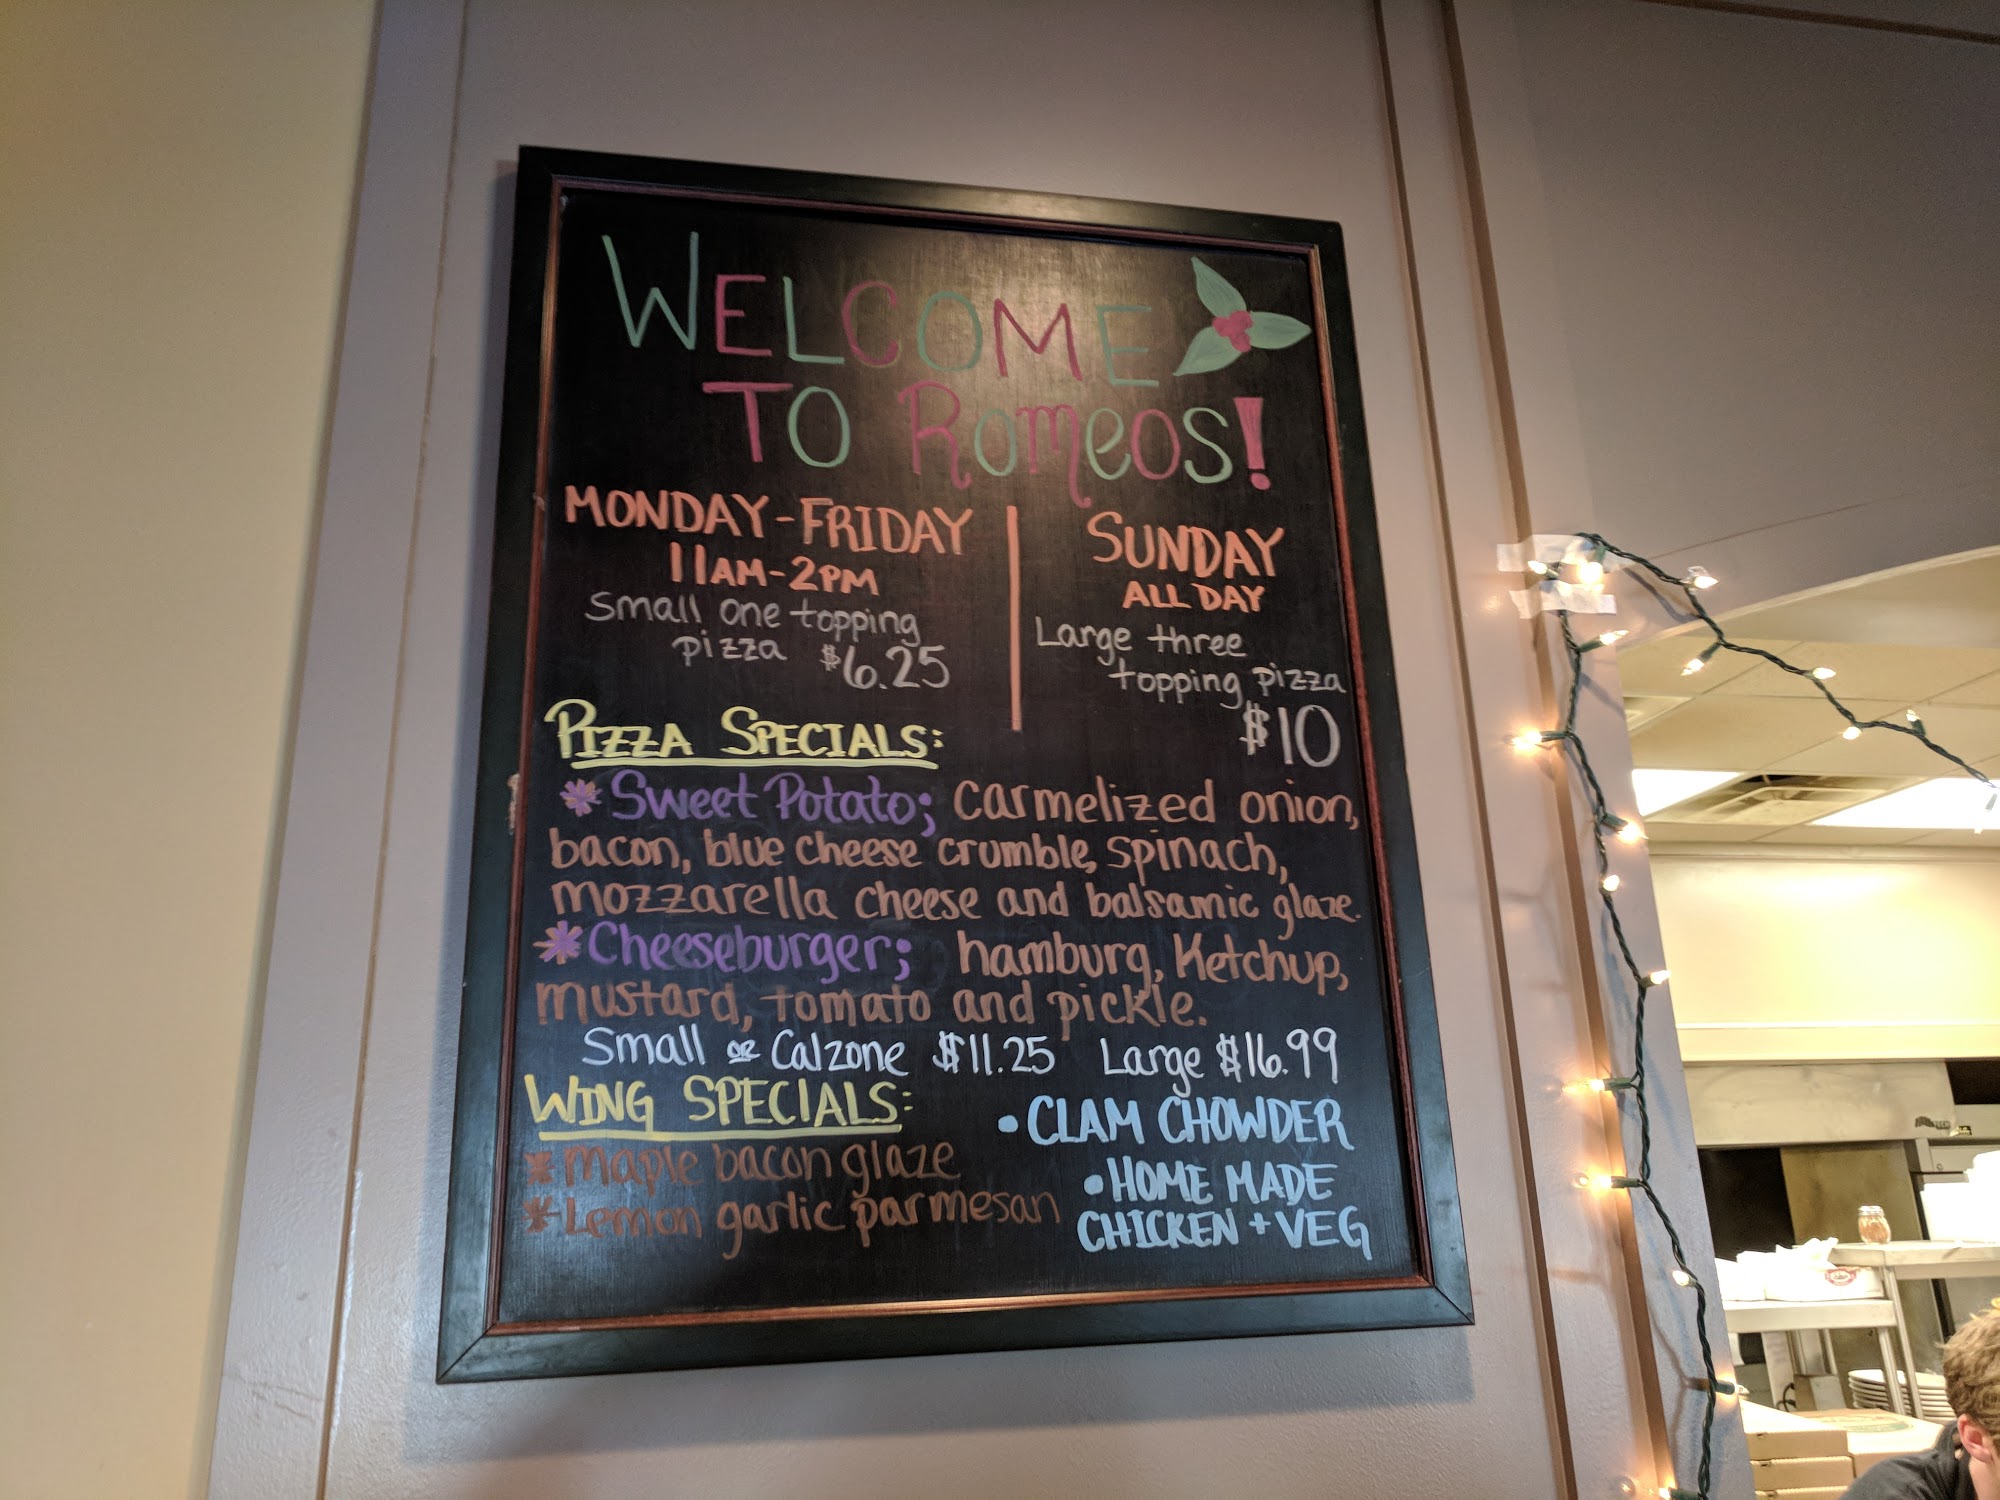 WELCOME
TO Romeos!
MONDAY-FRIDAY
11AM-2PM
Small one topping
pizza $6.25
SUNDAY
ALL DAY
Large three
topping pizza
$10
PIZZA SPECIALS:
* Sweet Potato; carmelized onion,
bacon, blue cheese crumble, spinach,
mozzarella cheese and balsamic glaze.
* Cheeseburger; hamburg, Ketchup,
mustard, tomato and pickle.
Small or Calzone $11.25 Large $16.99
WING SPECIALS:
* maple bacon glaze
* Lemon garlic parmesan
• CLAM CHOWDER
• HOME MADE
CHICKEN + VEG